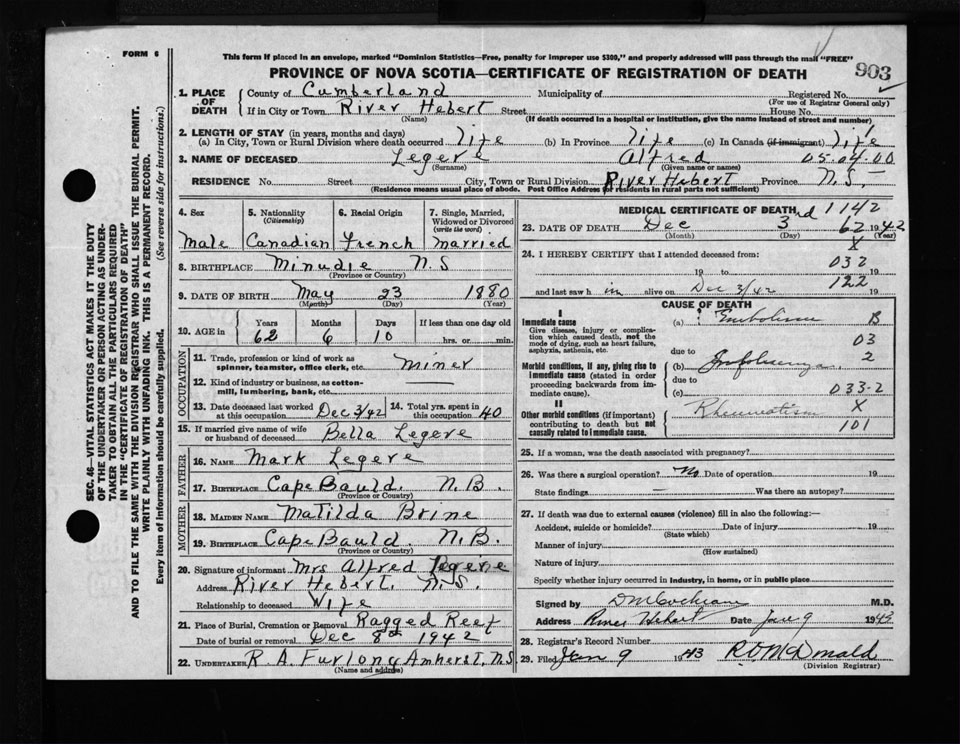 FORM 6
This form if placed in an envelope, marked "Dominion Statistics—Free, penalty for improper use $300," and properly addressed will pass through the mail "FREE"
PROVINCE OF NOVA SCOTIA—CERTIFICATE OF REGISTRATION OF DEATH
903
SEC. 46—VITAL STATISTICS ACT MAKES IT THE DUTY
OF THE UNDERTAKER OR PERSON ACTING AS UNDER-
TAKER TO OBTAIN ALL THE PARTICULARS REQUIRED
IN THE "CERTIFICATE OF REGISTRATION OF DEATH"
AND TO FILE THE SAME WITH THE DIVISION REGISTRAR WHO SHALL ISSUE THE BURIAL PERMIT.
WRITE PLAINLY WITH UNFADING INK. THIS IS A PERMANENT RECORD.
Every item of information should be carefully supplied. (See reverse side for instructions.)
1. PLACE OF DEATH County of Cumberland Municipality of Registered No.
(For use of Registrar General only)
If in City or Town River Hebert Street House No.
(Name) (If death occurred in a hospital or institution, give the name instead of street and number)
2. LENGTH OF STAY (in years, months and days)
(a) In City, Town or Rural Division where death occurred life (b) In Province life (c) In Canada (if immigrant) life
3. NAME OF DECEASED Legere Alfred 05.04.00
(Surname) (Given name or names)
RESIDENCE No. Street City, Town or Rural Division River Hebert Province N.S.
(Residence means usual place of abode. Post Office Address for residents in rural parts not sufficient)
4. Sex
Male
5. Nationality
(Citizenship)
Canadian
6. Racial Origin
French
7. Single, Married,
Widowed or Divorced
(write the word)
married
8. BIRTHPLACE Minudie N.S
(Province or Country)
9. DATE OF BIRTH May 23 1880
(Month) (Day) (Year)
10. AGE in Years Months Days If less than one day old
62 6 10 hrs. or min.
OCCUPATION
11. Trade, profession or kind of work as
spinner, teamster, office clerk, etc. Miner
12. Kind of industry or business, as cotton-
mill, lumbering, bank, etc. —
13. Date deceased last worked
at this occupation Dec 3/42
14. Total yrs. spent in
this occupation 40
15. If married give name of wife
or husband of deceased Bella Legere
FATHER
16. NAME Mark Legere
17. BIRTHPLACE Cape Bauld. N.B.
(Province or Country)
MOTHER
18. MAIDEN NAME Matilda Brine
19. BIRTHPLACE Cape Bauld. N.B.
(Province or Country)
20. Signature of informant Mrs Alfred Legere
Address River Hebert. N.S.
Relationship to deceased Wife
21. Place of Burial, Cremation or Removal Ragged Reef
Date of burial or removal Dec 8th 1942
22. UNDERTAKER R. A. Furlong Amherst, N.S
(Name and address)
MEDICAL CERTIFICATE OF DEATH
1142
23. DATE OF DEATH Dec 3rd 1942
(Month) (Day) (Year)
62
X
24. I HEREBY CERTIFY that I attended deceased from:
032
19 to 19
and last saw him alive on Dec 3/42 19
122
CAUSE OF DEATH
I
Immediate cause
Give disease, injury or complica-
tion which caused death, not the
mode of dying, such as heart failure,
asphyxia, asthenia, etc.
(a) Embolism B
03
due to
Morbid conditions, if any, giving rise to
immediate cause (stated in order
proceeding backwards from im-
mediate cause).
(b) 2
due to
(c) 033-2
II
Other morbid conditions (if important)
contributing to death but not
causally related to immediate cause.
Rheumatism X
101
25. If a woman, was the death associated with pregnancy?
26. Was there a surgical operation? No Date of operation 19
State findings — Was there an autopsy?
27. If death was due to external causes (violence) fill in also the following:—
Accident, suicide or homicide? Date of injury 19
(State which)
Manner of injury
(How sustained)
Nature of injury
Specify whether injury occurred in industry, in home, or in public place
Signed by D M Cochrane M.D.
Address River Hebert Date Jan 9 1943
28. Registrar's Record Number
29. Filed Jan 9 1943 R. D. McDonald
(Division Registrar)